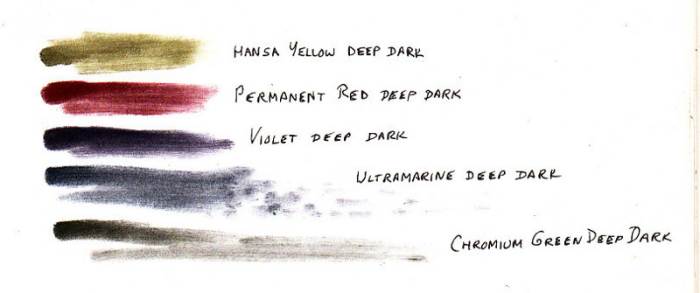 HANSA YELLOW DEEP DARK
PERMANENT RED DEEP DARK
VIOLET DEEP DARK
ULTRAMARINE DEEP DARK
CHROMIUM GREEN DEEP DARK